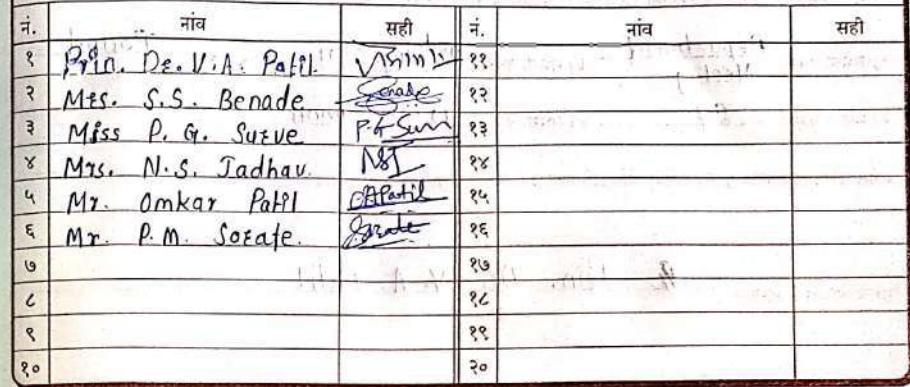 नं. नांव सही नं. नांव सही
१ Prin. Dr. V.A. Patil. ११
२ Mrs. S.S. Benade Benade १२
३ Miss P. G. Surve P. G Surve १३
४ Mrs. N.S. Jadhav. NSJ १४
५ Mr. Omkar Patil OAPatil १५
६ Mr. P.M. Sorate. Sorate १६
७ १७
८ १८
९ १९
१० २०